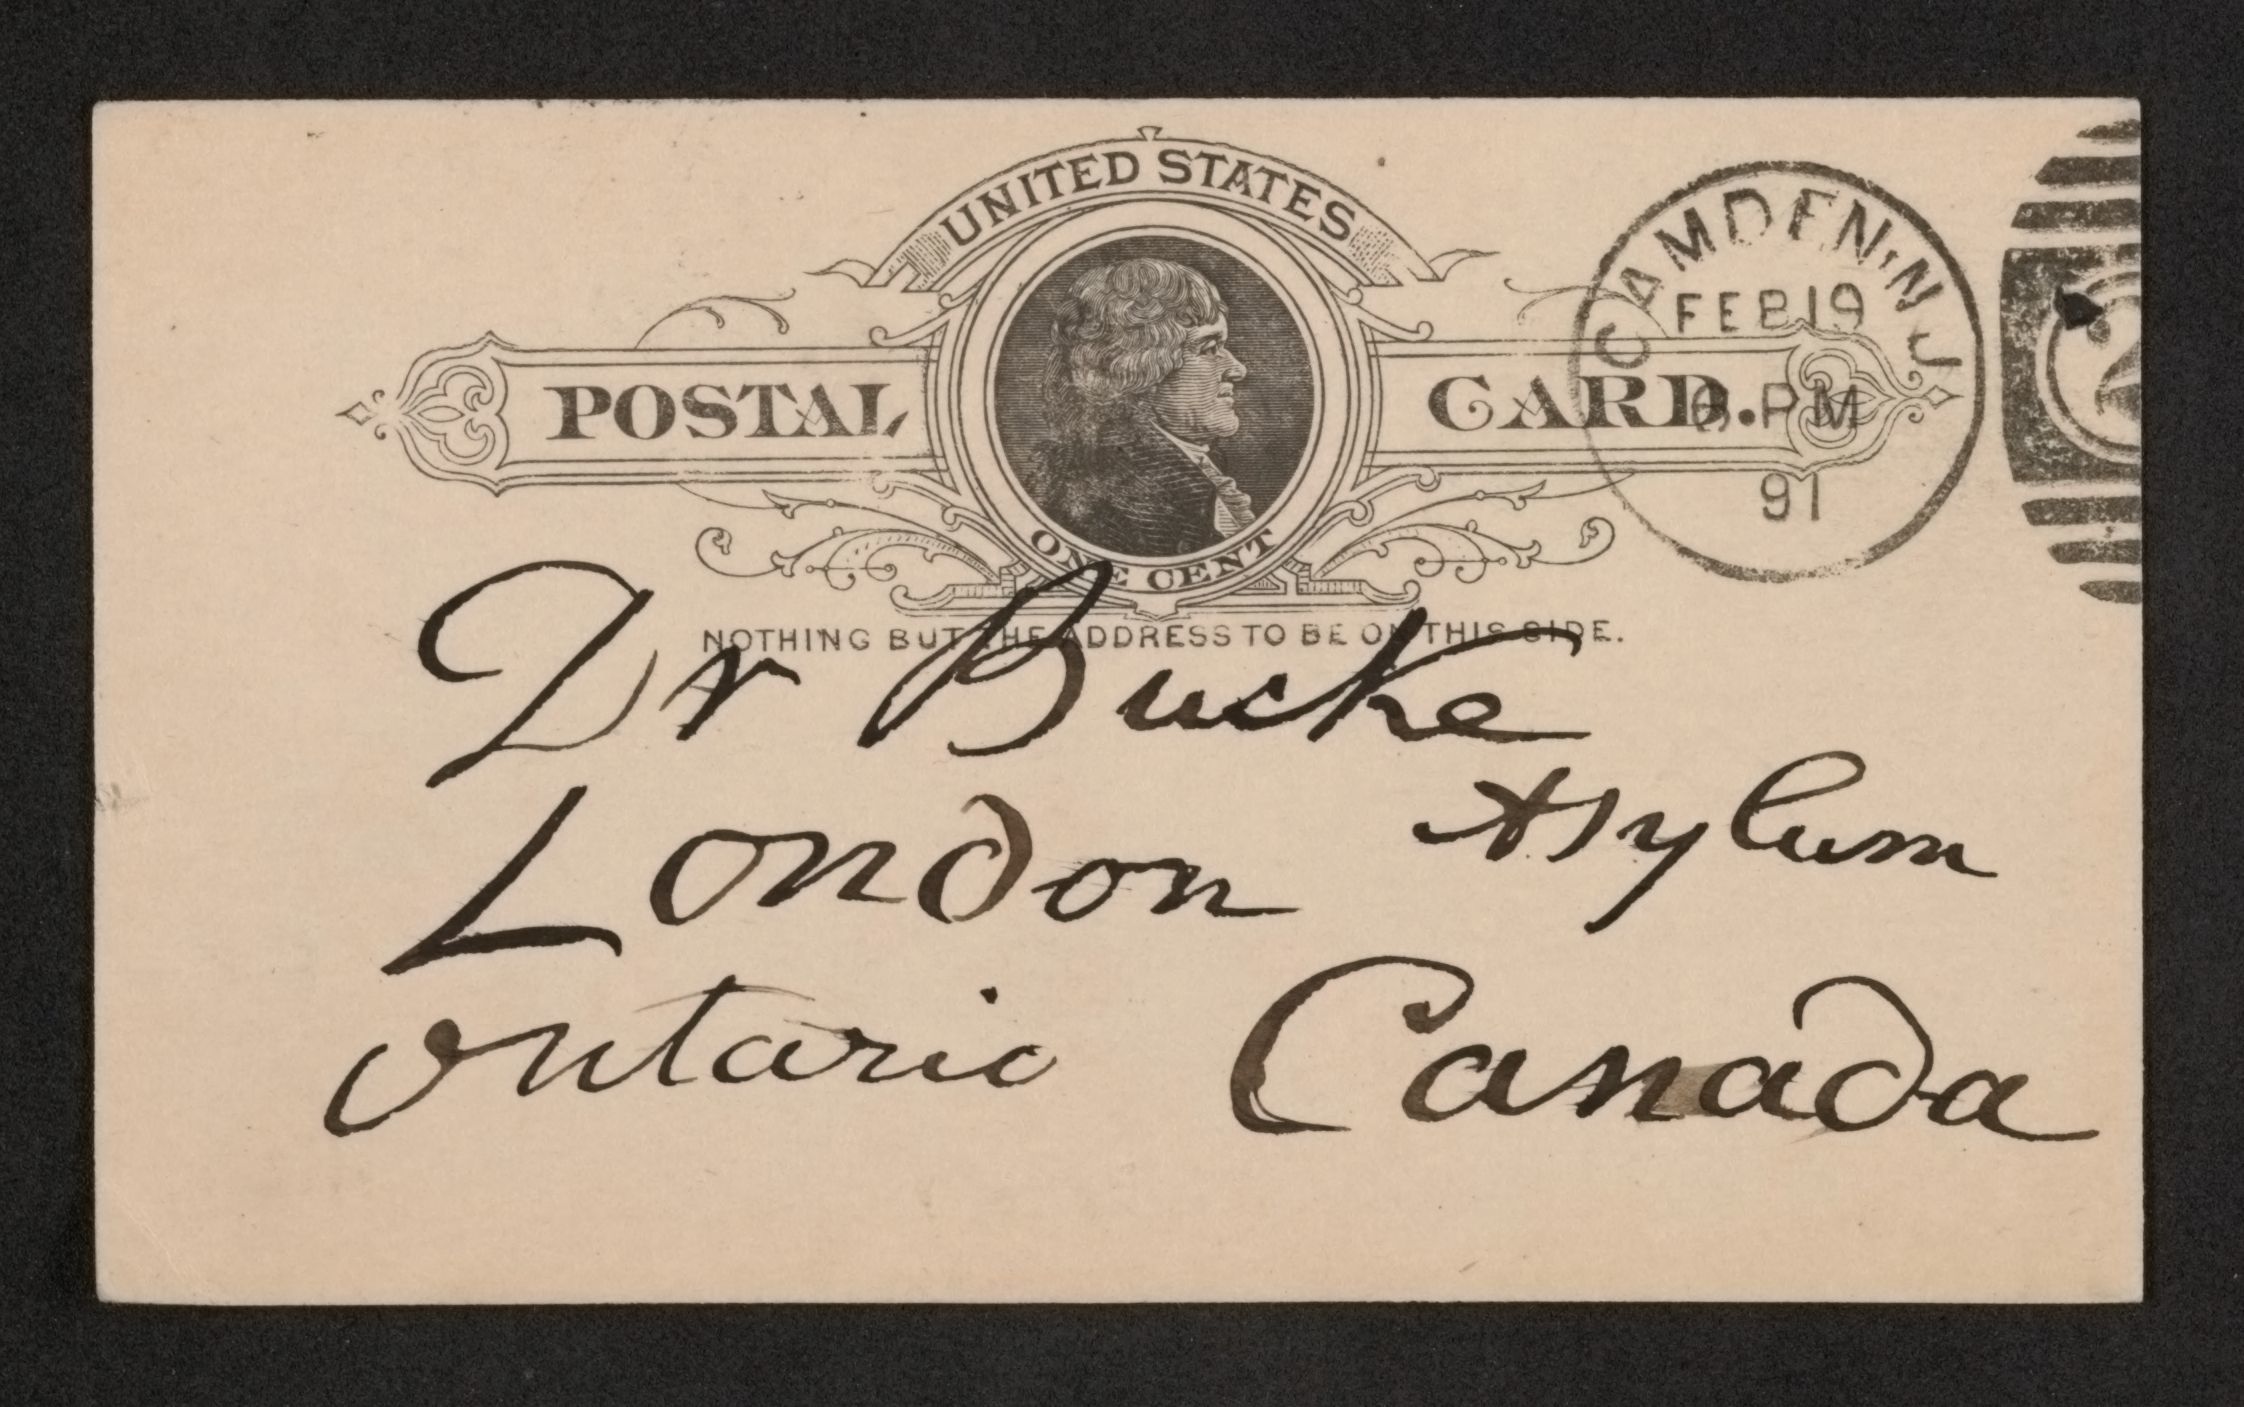 UNITED STATES
POSTAL CARD.
ONE CENT
CAMDEN, N.J.
FEB 19
6 PM
91
NOTHING BUT THE ADDRESS TO BE ON THIS SIDE.
Dr Bucke
Asylum
London
Ontario Canada